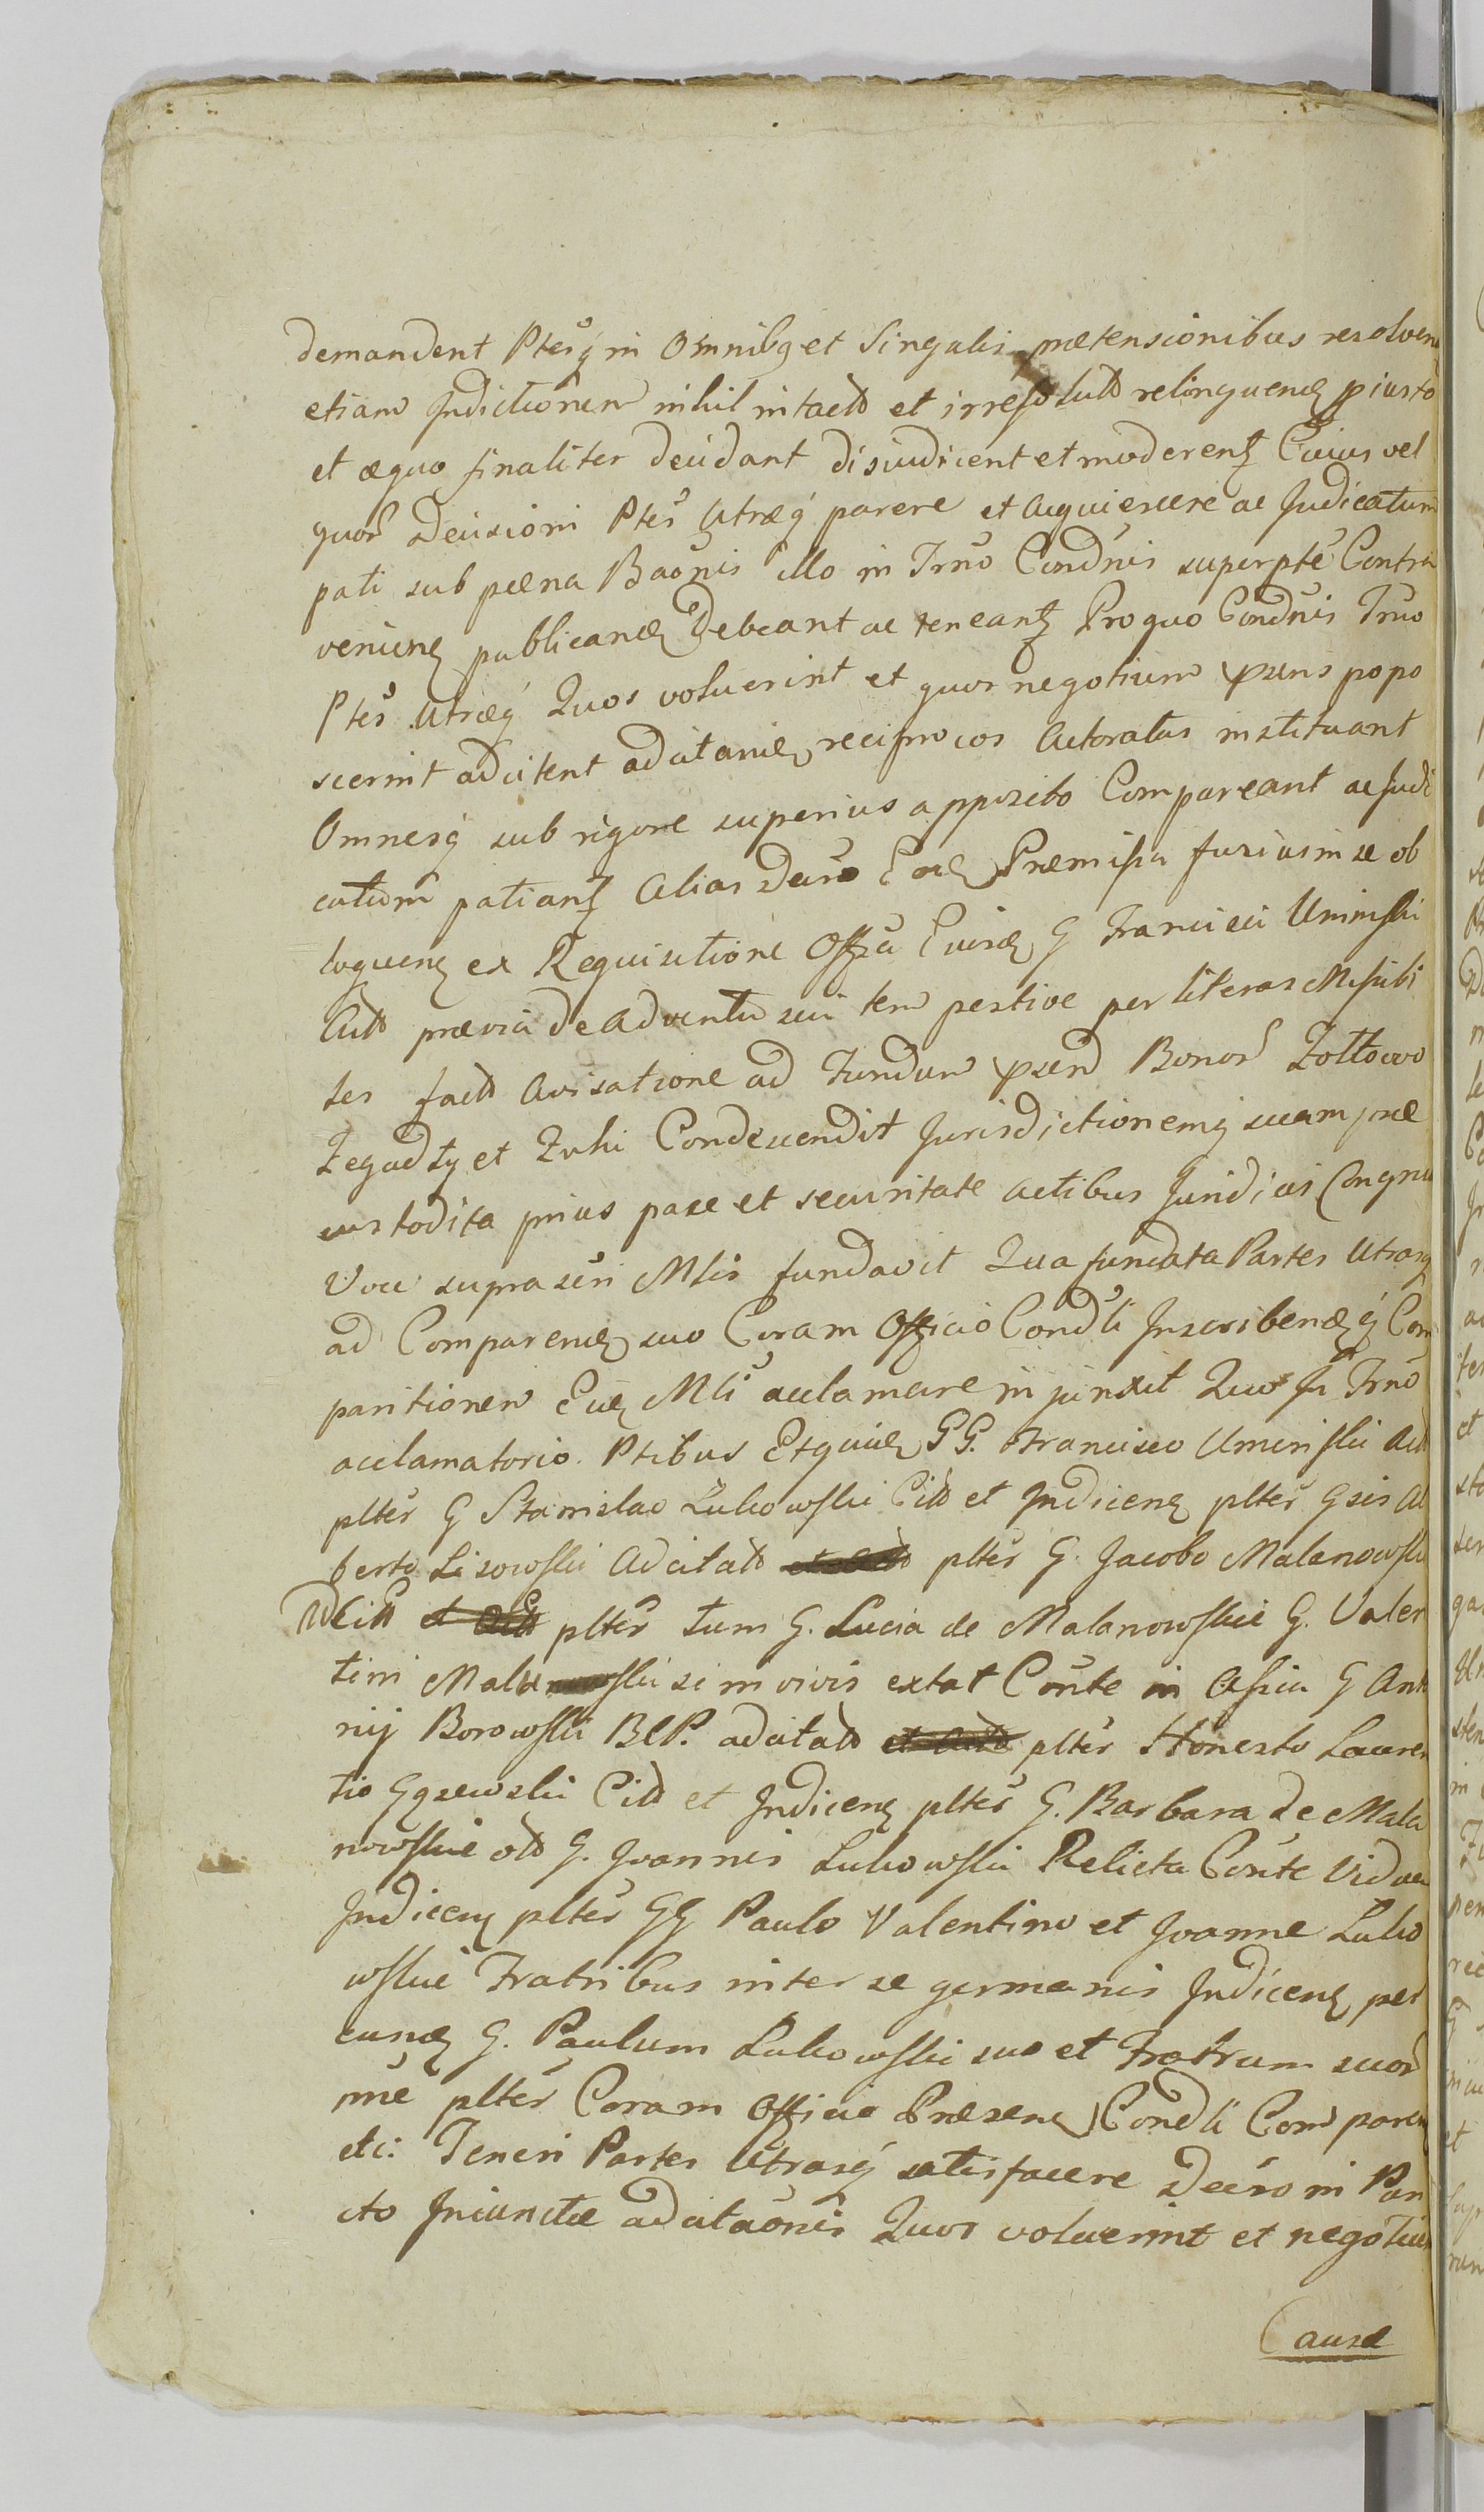 demandent Ptesq in Omnibq et Singulis prætensionibus resolven
etiam Indictionem nihil intacto et irresoluto relinquene p iusto
et æquo finaliter decidant disiudicent et moderent Cuius vel
quor Decisioni Ptes Utræq parere et acquiescere ac Judicatum
pati sub pæna Baonis illo in Trno Condnis super pte Contra
veniene publicane Debeant ac teneant Pro quo Condnis Trno
Ptes Utræq Quos voluerint et quos negotium psens popo
scerint adcitent adcitanie reciprocos Actoratus instituant
Omnesq sub rigore superius apposito Compareant ac Judi
catum patiant Alias Decro Eode Præmissa fusius in se ob
loquene ex Requisitione Offsa Eiusde G Francisci Uminski
Acto prævia de adventu sui tempestive per literas Missibi
les facto avisatione ad Fundum psend Bonor Zołtowo
Zegadły et Zuki Condescendit Jurisdictionemq suam præ
custodita prius pace et securitate actibus Juridicis Congrua
Voce supra scri Mlis fundavit Qua fundata Partes Utrasq
ad Comparende suo Coram Officio Condli Inscribendeq Com
paritionem Eue Mli acclamare injunxit Quo In Trno
acclamatorio. Ptibus Etquide GG. Francisco Uminski Acto
plter G Stanislao Lukowski Cito et Indicene plter Gsis Al
berto Lisowski Adcitato plter G. Jacobo Malanowski
AdCito plter tum G. Lucia de Malanowskie G. Valen
tini Malanowski si in vivis extat Conte in Assia G Anto
nij Borowski BCP. adcitato plter Honesto Lauren
tio Gąsewski Cito et Indicene plter G. Barbara de Mala
nowskie oto G. Joannis Lukowski Relicta Conte Vidua
Indicene plter GG Paulo Valentino et Joanne Luko
wskie Fratribus inter se germanis Indicene per
eunde G. Paulum Lukowski suo et Fratrum suor
nne plter Coram Officio Præsene Condli Comparen
etc: Teneri Partes Utrasq satisfacere Decro in Pun
cto Iniunctæ adcitaonis Quos voluerint et negotium
Causæ